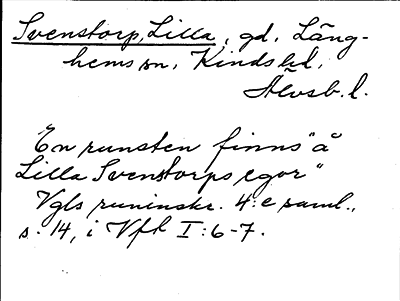 Svenstorp, Lilla, gd, Läng-
hems sn, Kinds hd,
Älvsb. l.
En runsten finns "å
Lilla Svenstorps egor"
Vgls runinskr. 4:e saml.,
s. 14, i Vft I:6-7.